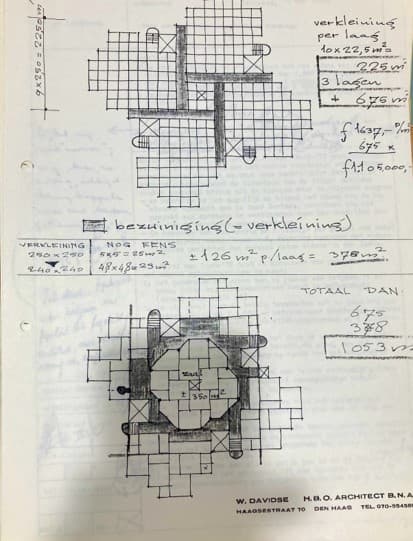 9 x 250 = 2250 m
verkleining
per laag
10 x 22,5 m² =
225 m²
3 lagen
± 675 m²
f 1637,- p/m²
675 x
f 1.105.000,-
bezuiniging (= verkleining)
VERKLEINING
250 x 250
240 x 240
NOG EENS
5x5 = 25 m²
48 x 48 = 23 m²
± 126 m² p/laag = 378 m²
TOTAAL DAN
675
378
1053 m²
zaal
± 350 m²
W. DAVIDSE H.B.O. ARCHITECT B.N.A
HAAGSESTRAAT 70 DEN HAAG TEL. 070-